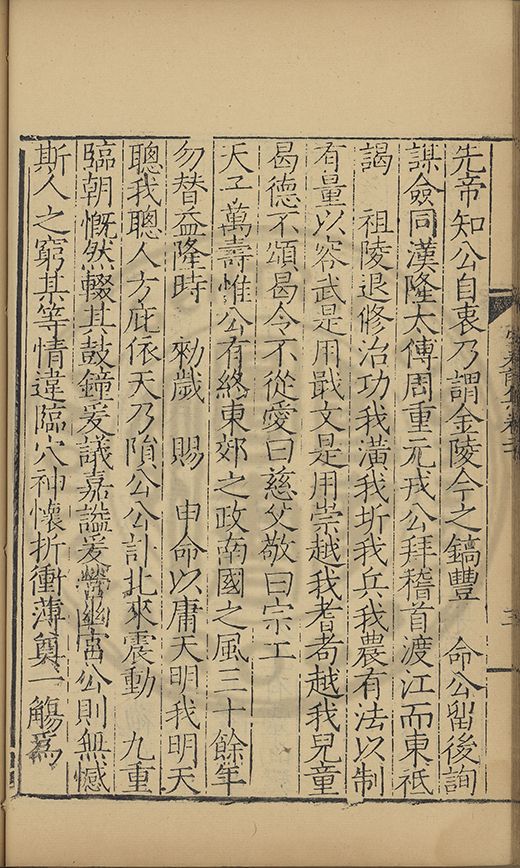 先帝知公自衷乃謂金陵今之鎬豐　命公留後詢
謀僉同漢隆太傅周重元戎公拜稽首渡江而東祗
謁　祖陵退修治功我潢我圻我兵我農有法以制
有量以容武是用戢文是用崇越我耆耇越我兒童
曷德不頌曷令不從愛曰慈父敬曰宗工
天子萬壽惟公有終東郊之政南國之風三十餘年
勿替益隆時　勑歲　賜　申命以庸天明我明天
聰我聰人方庇依天乃隕公公計北來震動　九重
臨朝慨然輟其鼓鐘爰議嘉謚爰營幽宮公則無憾
斯人之窮某等情違臨穴神懷折衝薄奠一觴爲